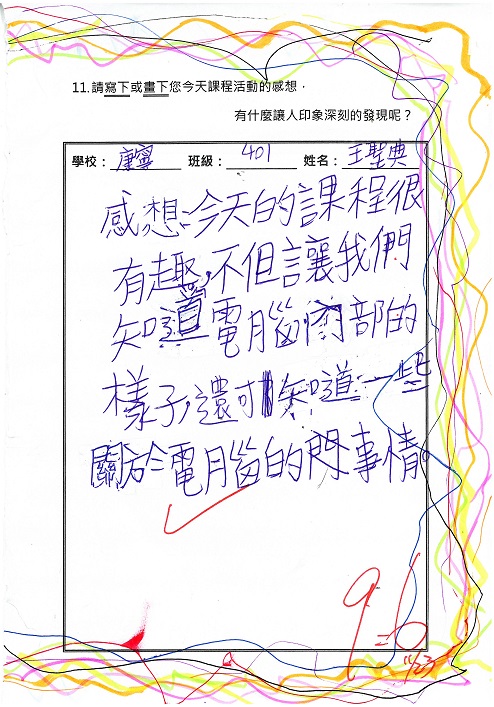 11.請寫下或畫下您今天課程活動的感想，
有什麼讓人印象深刻的發現呢？
學校：康寧 班級：401 姓名：王聖典
感想:今天的課程很
有趣,不但讓我們
知道電腦內部的
樣子,還可知道一些
關於電腦的事情。
96
11/23